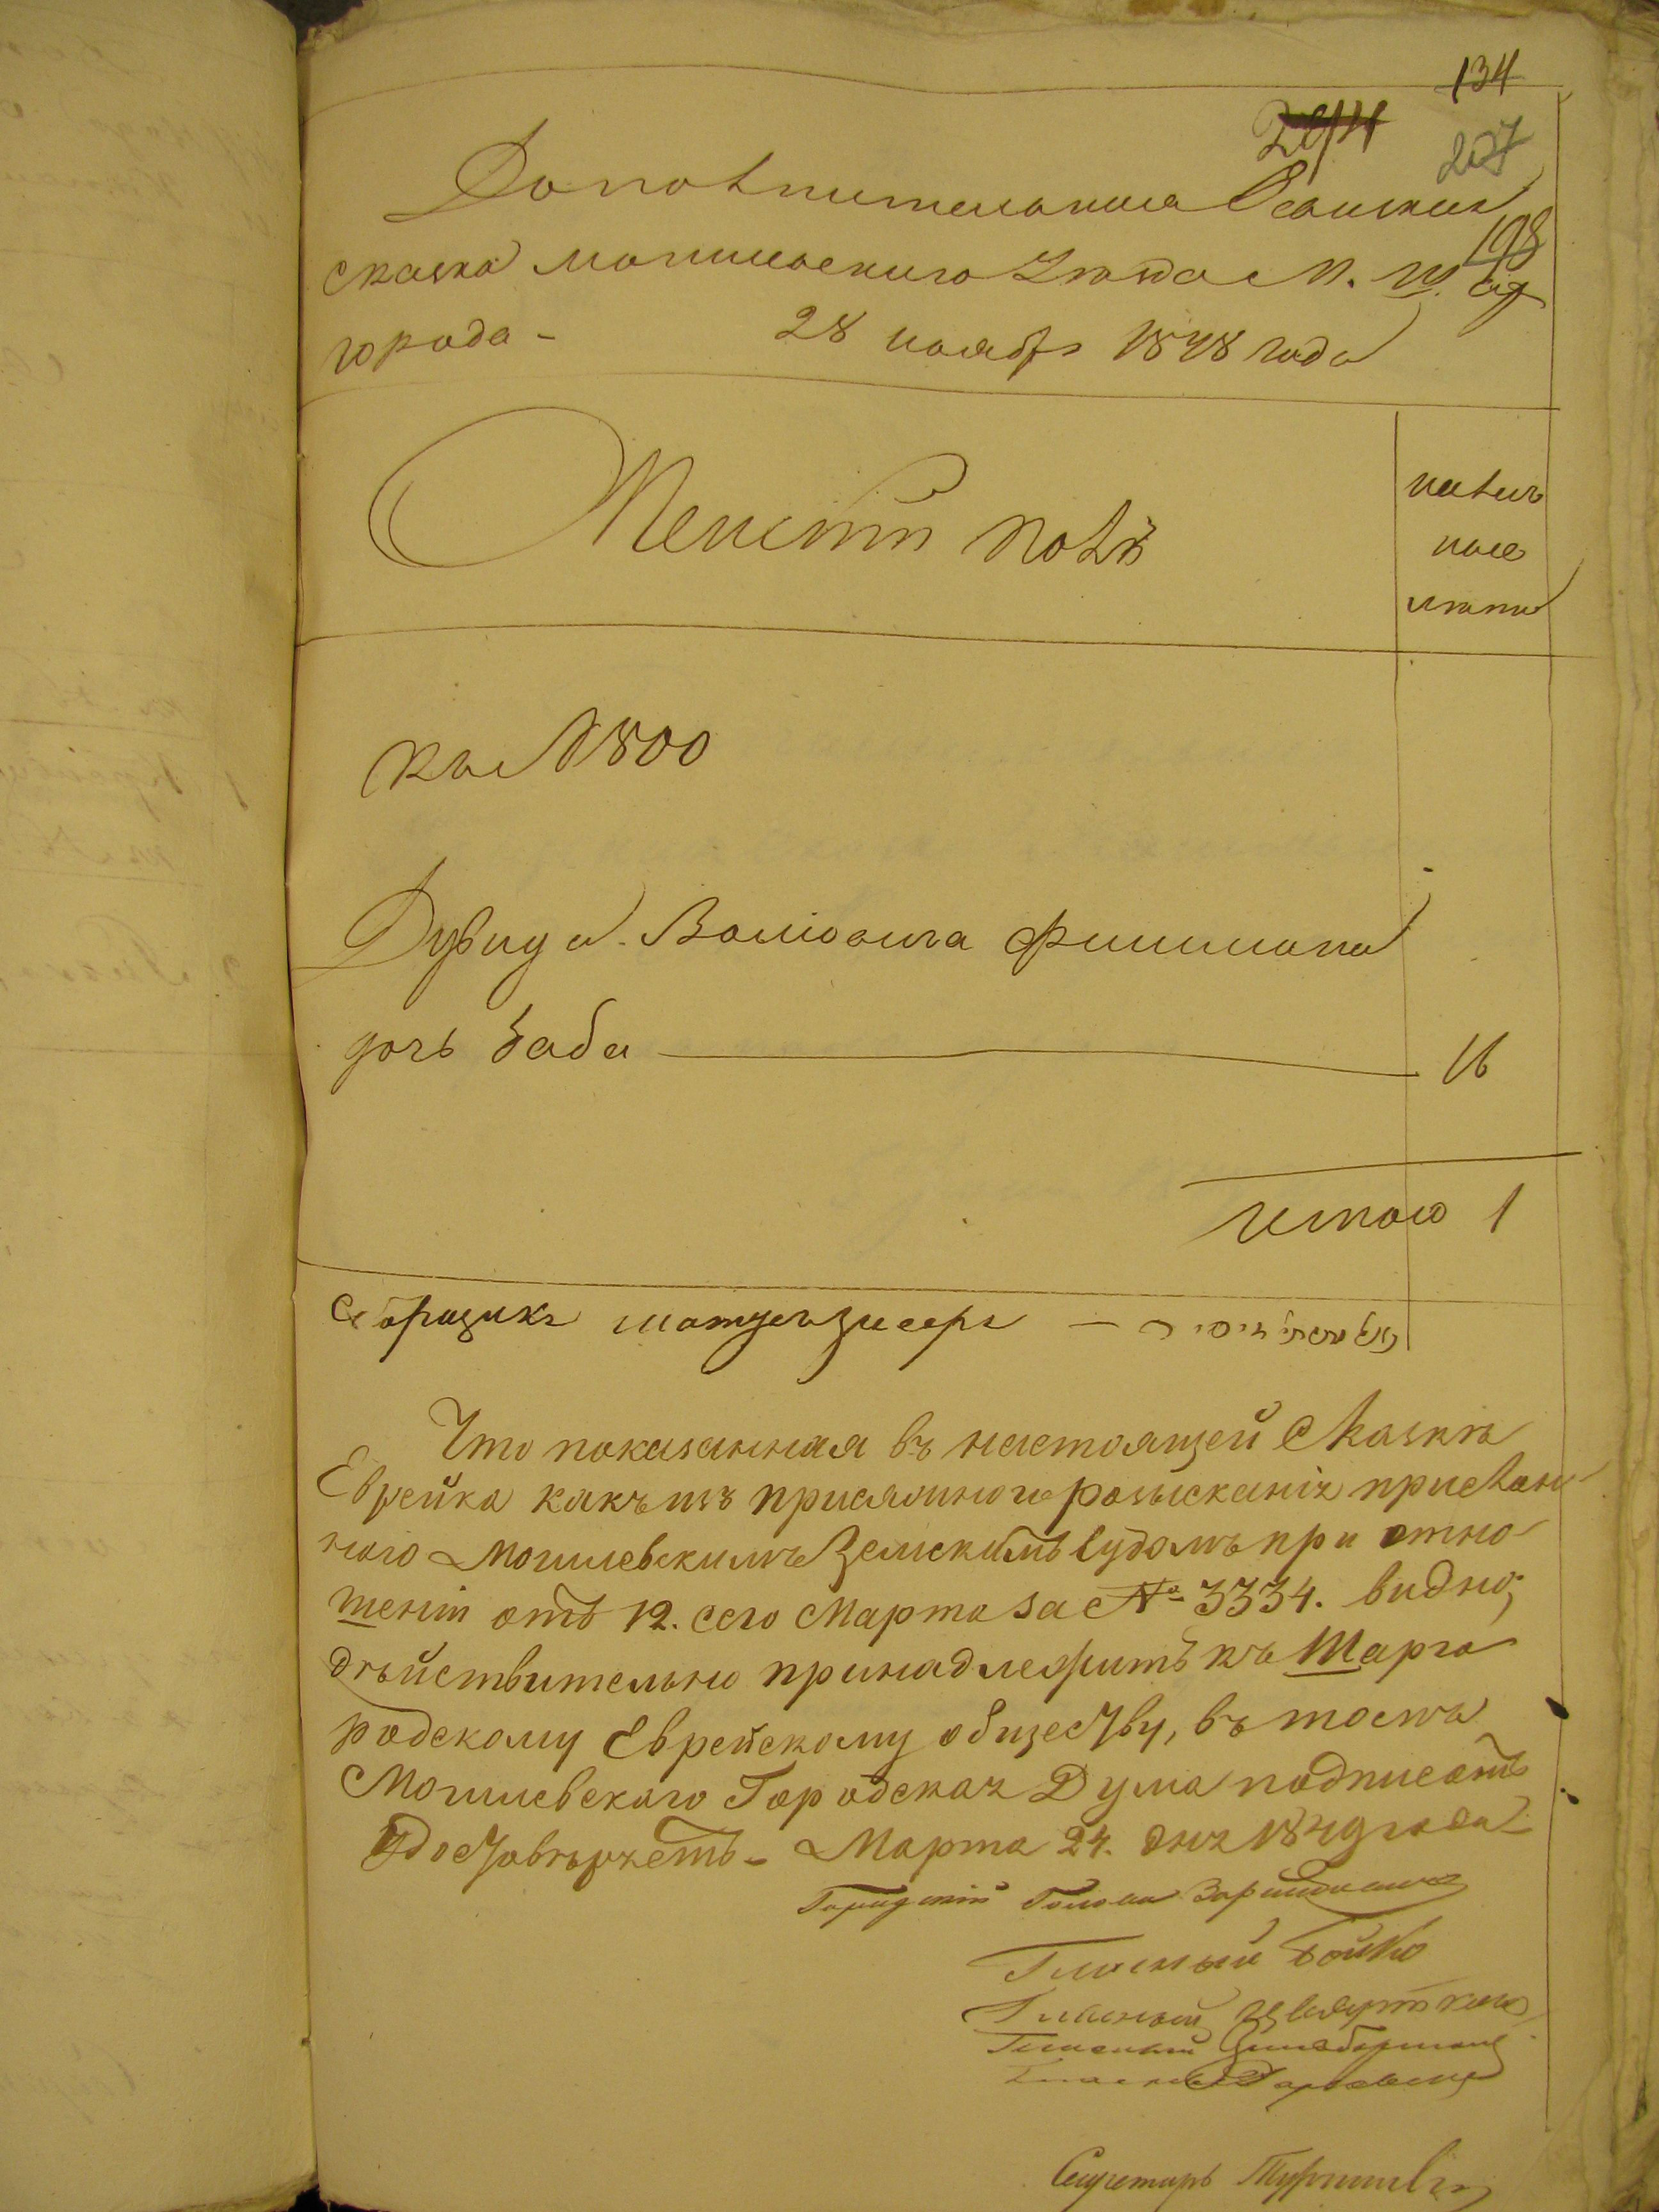 134
207
198
Дополнительная Ревиская
сказка могилевского уезда м. Шар
города - 28 ноября 1848 года
Женскій полъ
налич
ное
лета
къ №800
Дувида Волковича Фишмана
дочь Баба 16
итого 1
Сборщикъ
Что показанная въ настоящей Сказкѣ
Еврейка какъ изъ присяжного розысканія прислан-
ного Могилевскимъ Земскимъ Судомъ при отно-
шеніи отъ 12. сего Марта за № 3334. видно,
дѣйствительно принадлежитъ къ Шарго
родскому Еврейскому обществу, въ томъ
Могилевскаго Городская Дума подписомъ
удостовѣряетъ - Марта 24. дня 1849 года
Городской Голова
Гласный Бойко
Гласный
Гласный
Гласный
Секретарь